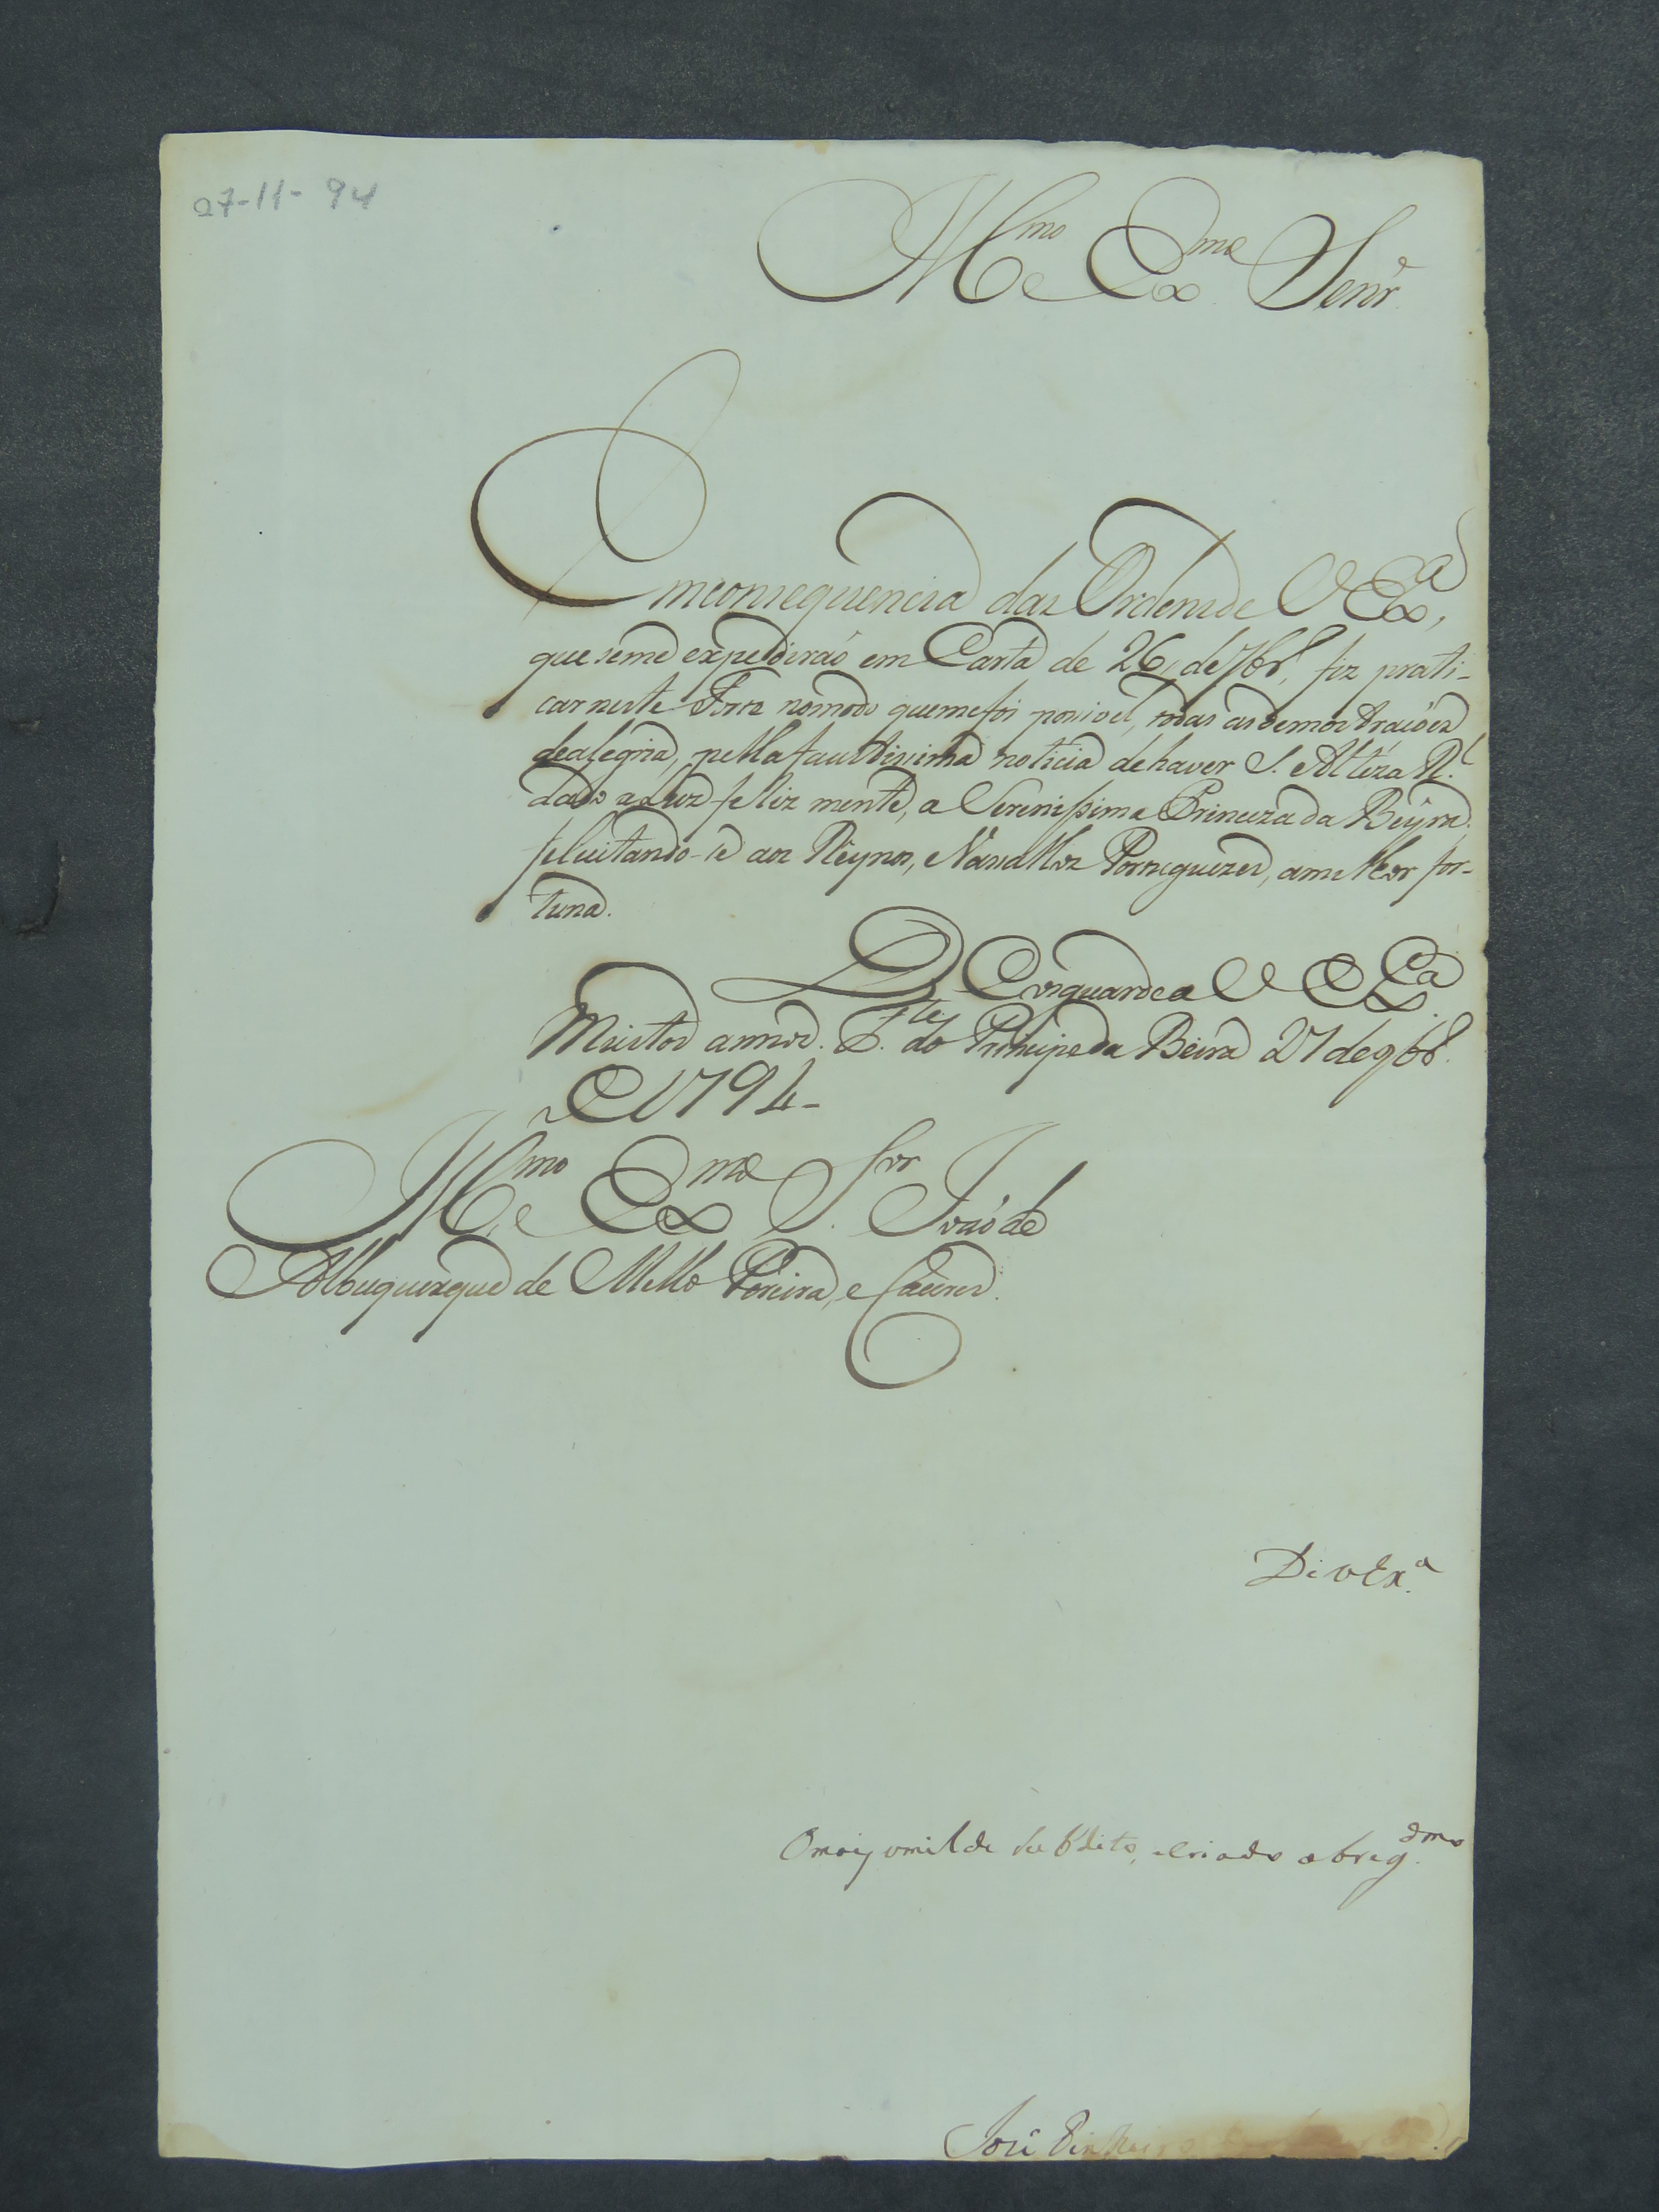 27-11-94
Ill.mo e Ex.mo Senr.
Em consequencia das Ordens de V Ex.a,
que se me expedirão em Carta de 26, de 7br.º, fiz prati-
car neste Forte no modo que me foi posivel, todas as demostraçóes
de alegria, pella faustisima noticia de haver S. Alteza R.l
dado a Luz felizmente, a Serenissima Princeza da Beyra,
felicitando-se aos Reynos, e Vasallos Portuguezes, a melhor for-
tuna.
Deos guarde a V Ex.a
Muitos annos. F.te do Principe da Beira 27 de 9br.º
de 1794-
Ill.mo e Ex.mo S.or João de
Albuquerque de Mello Pereira, e Caceres.
De V Ex.a
O mais umilde subdito, e criado obrig.dmo
José Pinheiro